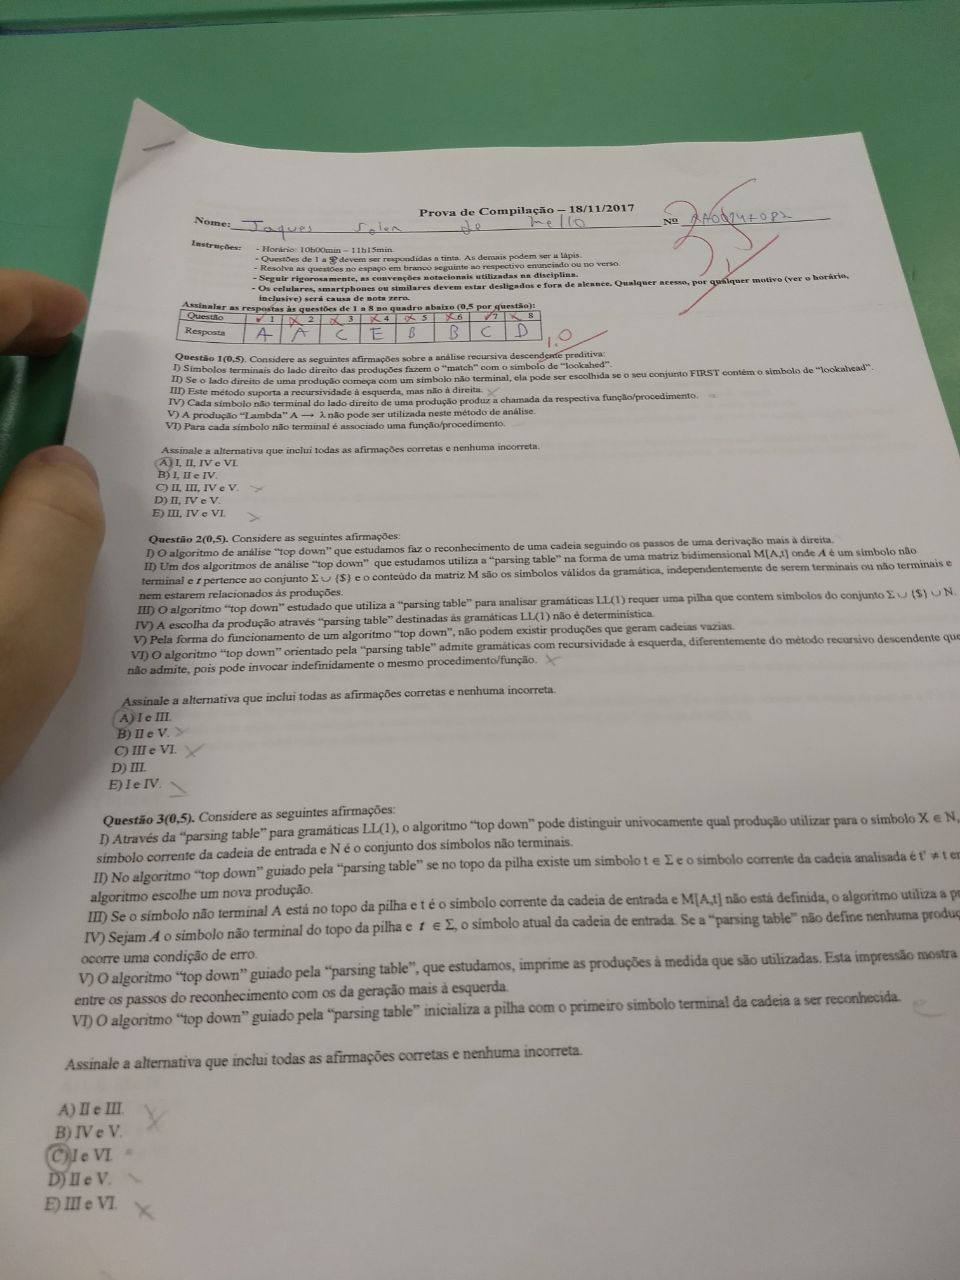 Prova de Compilação – 18/11/2017
Nome: Jaques de Mello Nº
3,5
Instruções: - Horário: 10h00min – 11h15min.
- Questões de 1 a 8 devem ser respondidas a tinta. As demais podem ser a lápis.
- Resolva as questões no espaço em branco seguinte ao respectivo enunciado ou no verso.
- Seguir rigorosamente, as convenções notacionais utilizadas na disciplina.
- Os celulares, smartphones ou similares devem estar desligados e fora de alcance. Qualquer acesso, por qualquer motivo (ver o horário,
inclusive) será causa de nota zero.
Assinalar as respostas às questões de 1 a 8 no quadro abaixo (0,5 por questão):
Questão 1 2 3 4 5 6 7 8
Resposta A A C E B B C D
1,0
Questão 1(0,5). Considere as seguintes afirmações sobre a análise recursiva descendente preditiva:
I) Símbolos terminais do lado direito das produções fazem o “match” com o símbolo de “lookahed”.
II) Se o lado direito de uma produção começa com um símbolo não terminal, ela pode ser escolhida se o seu conjunto FIRST contém o símbolo de “lookahead”.
III) Este método suporta a recursividade à esquerda, mas não à direita.
IV) Cada símbolo não terminal do lado direito de uma produção produz a chamada da respectiva função/procedimento.
V) A produção “Lambda” A → λ não pode ser utilizada neste método de análise.
VI) Para cada símbolo não terminal é associado uma função/procedimento.
Assinale a alternativa que inclui todas as afirmações corretas e nenhuma incorreta.
A) I, II, IV e VI.
B) I, II e IV.
C) II, III, IV e V.
D) II, IV e V.
E) III, IV e VI.
Questão 2(0,5). Considere as seguintes afirmações:
I) O algoritmo de análise “top down” que estudamos faz o reconhecimento de uma cadeia seguindo os passos de uma derivação mais à direita.
II) Um dos algoritmos de análise “top down” que estudamos utiliza a “parsing table” na forma de uma matriz bidimensional M[A,t] onde A é um símbolo não
terminal e t pertence ao conjunto Σ ∪ {$} e o conteúdo da matriz M são os símbolos válidos da gramática, independentemente de serem terminais ou não terminais e
nem estarem relacionados às produções.
III) O algoritmo “top down” estudado que utiliza a “parsing table” para analisar gramáticas LL(1) requer uma pilha que contem símbolos do conjunto Σ ∪ {$} ∪ N.
IV) A escolha da produção através “parsing table” destinadas às gramáticas LL(1) não é determinística.
V) Pela forma do funcionamento de um algoritmo “top down”, não podem existir produções que geram cadeias vazias.
VI) O algoritmo “top down” orientado pela “parsing table” admite gramáticas com recursividade à esquerda, diferentemente do método recursivo descendente que
não admite, pois pode invocar indefinidamente o mesmo procedimento/função.
Assinale a alternativa que inclui todas as afirmações corretas e nenhuma incorreta.
A) I e III.
B) II e V.
C) III e VI.
D) III.
E) I e IV.
Questão 3(0,5). Considere as seguintes afirmações:
I) Através da “parsing table” para gramáticas LL(1), o algoritmo “top down” pode distinguir univocamente qual produção utilizar para o símbolo X ∈ N,
símbolo corrente da cadeia de entrada e N é o conjunto dos símbolos não terminais.
II) No algoritmo “top down” guiado pela “parsing table” se no topo da pilha existe um símbolo t ∈ Σ e o símbolo corrente da cadeia analisada é t' ≠ t
algoritmo escolhe um nova produção.
III) Se o símbolo não terminal A está no topo da pilha e t é o símbolo corrente da cadeia de entrada e M[A,t] não está definida, o algoritmo utiliza a
IV) Sejam A o símbolo não terminal do topo da pilha e t ∈ Σ, o símbolo atual da cadeia de entrada. Se a “parsing table” não define nenhuma
ocorre uma condição de erro.
V) O algoritmo “top down” guiado pela “parsing table”, que estudamos, imprime as produções à medida que são utilizadas. Esta impressão mostra
entre os passos do reconhecimento com os da geração mais à esquerda.
VI) O algoritmo “top down” guiado pela “parsing table” inicializa a pilha com o primeiro símbolo terminal da cadeia a ser reconhecida.
Assinale a alternativa que inclui todas as afirmações corretas e nenhuma incorreta.
A) II e III.
B) IV e V.
C) I e VI.
D) II e V.
E) III e VI.